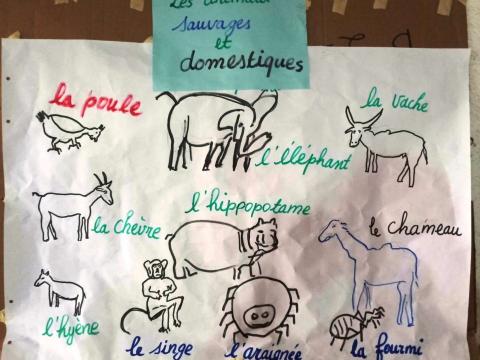 Les animaux
sauvages
et
domestiques
la poule
la vache
l'éléphant
l'hippopotame
la chèvre
le chameau
l'hyène
le singe
l'araignée
la fourmi